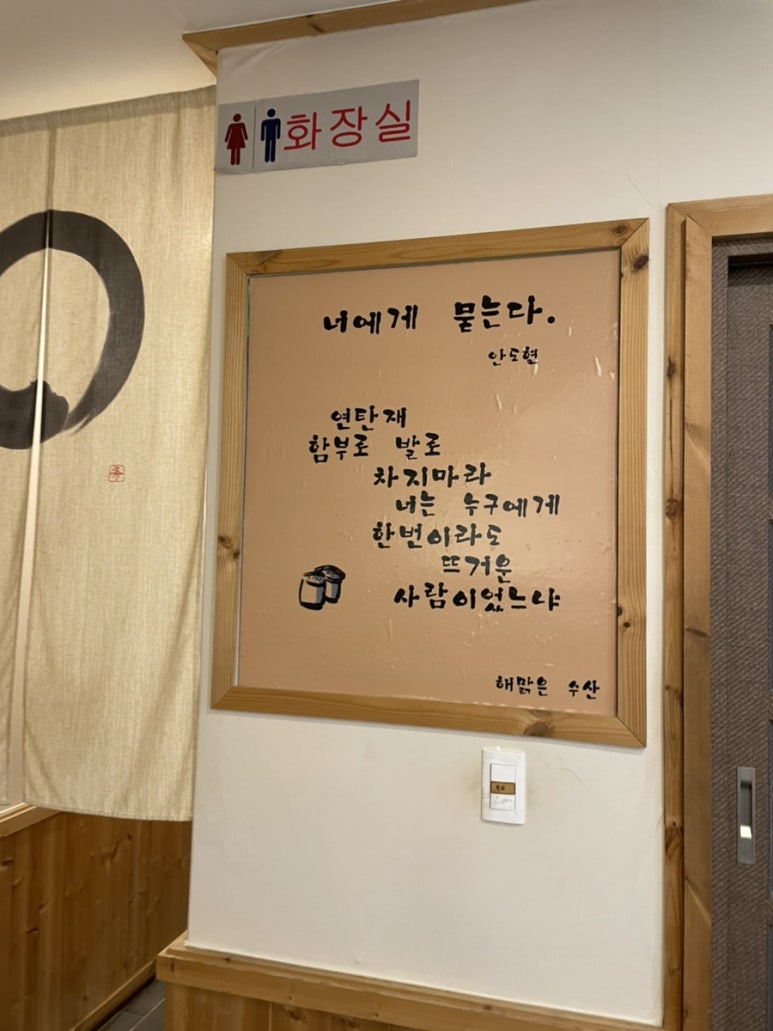 화장실
너에게 묻는다.
안도현
연탄재
함부로 발로
차지마라
너는 누구에게
한번이라도
뜨거운
사람이었느냐
해맑은 수산